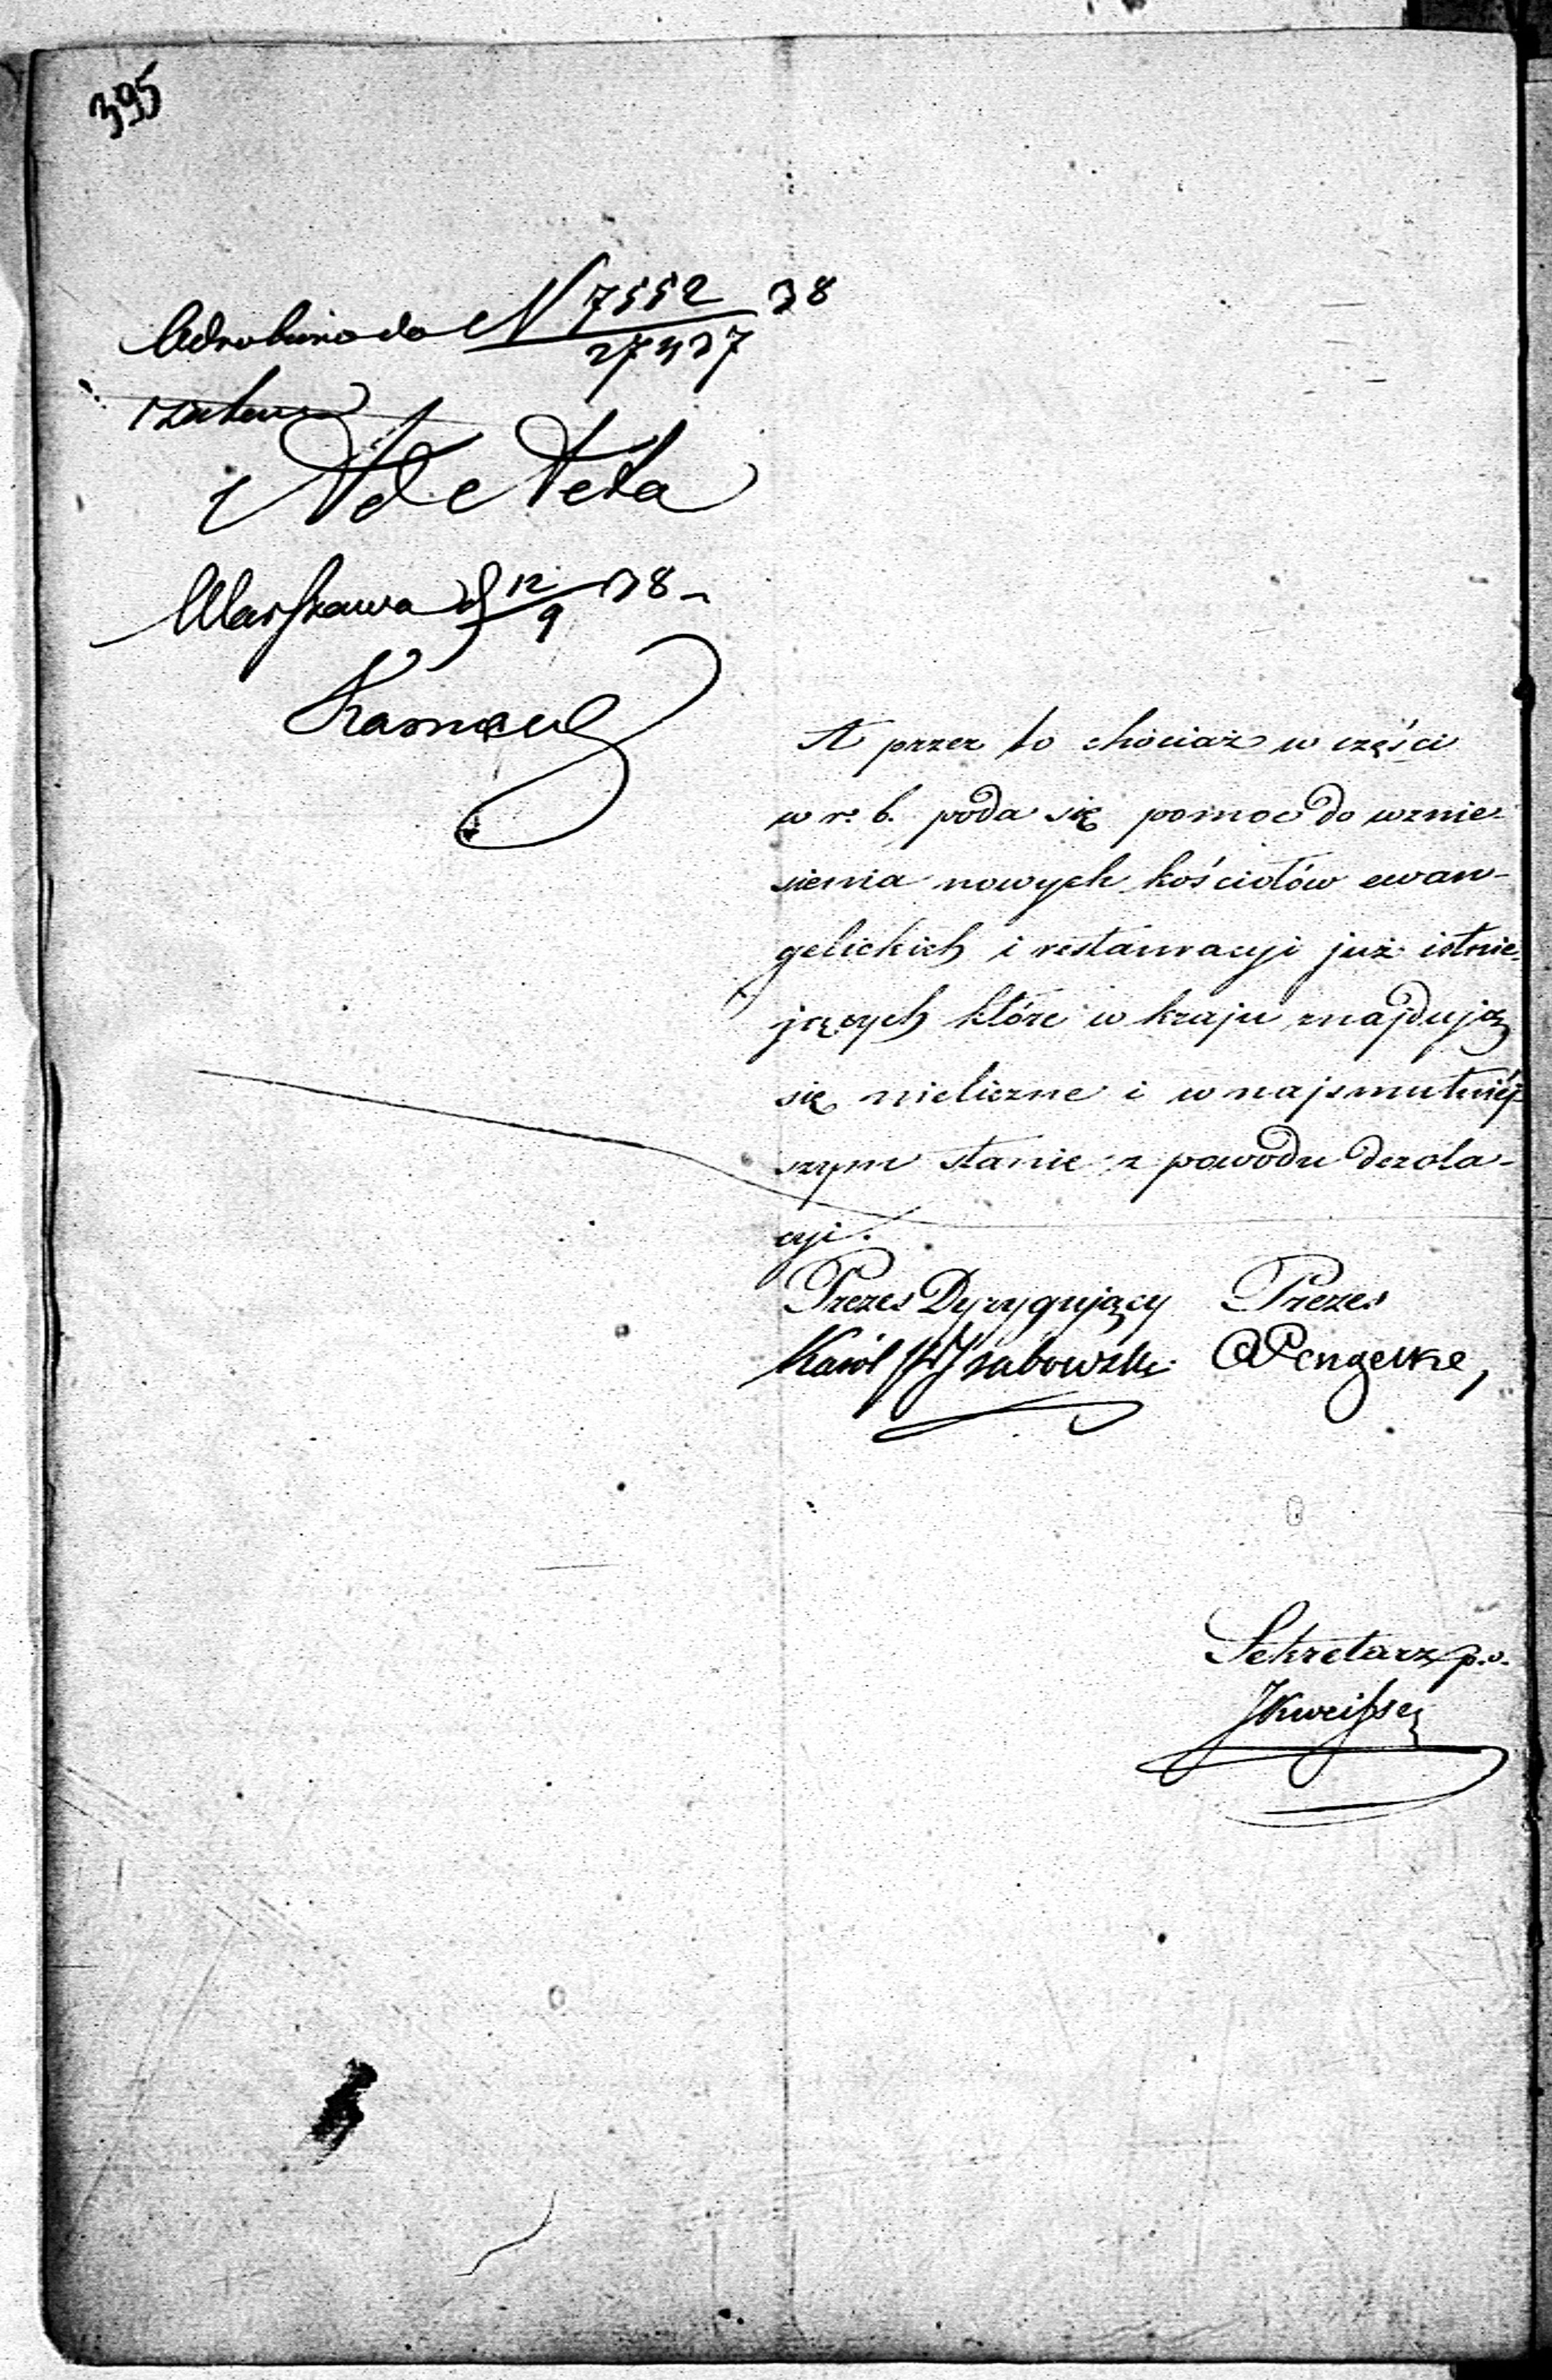 395
Odrobiono do N 7552/27437 38
zatem
i Ad acta
Warszawa d 12/9 38
A przez to chociaż w części
w r. b. poda się pomoc do wznie-
sienia nowych kościołów ewan-
gelickich i restauracyi już istnie-
jących które w kraju znajdują
się nieliczne i w najsmutniéj-
szym stanie z powodu dezola-
cyi.
Prezes Dyrygujący Prezes
Karól Hr Grabowski Pengelke,
Sekretarz p. o.